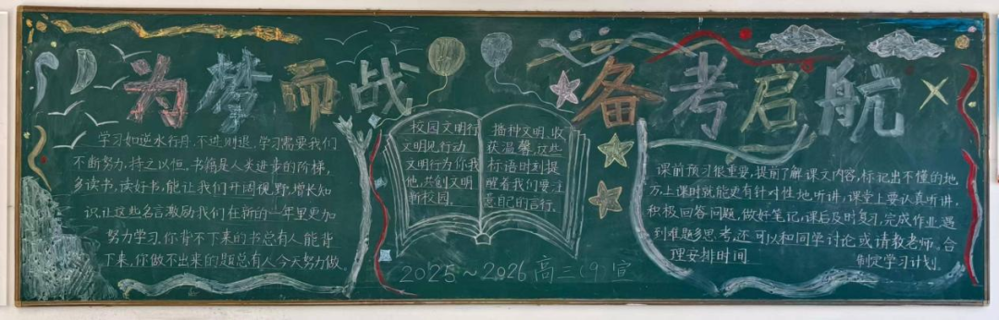 为梦而战
备考启航
学习如逆水行舟,不进则退,学习需要我们
不断努力,持之以恒,书籍是人类进步的阶梯,
多读书,读好书,能让我们开阔视野,增长知
识,让这些名言激励我们在新的一年里更加
努力学习,你背不下来的书总有人能背
下来,你做不出来的题总有人今天努力做。
校园文明行
文明见行动
文明行为你我
他,共创文明
新校园。
播种文明,收
获温馨,这些
标语时刻提
醒着我们要注
意自己的言行。
2025~2026高三(9)宣
课前预习很重要,提前了解课文内容,标记出不懂的地
方,上课时就能更有针对性地听讲,课堂上要认真听讲,
积极回答问题,做好笔记,课后及时复习,完成作业,遇
到难题多思考,还可以和同学讨论或请教老师,合
理安排时间
制定学习计划.